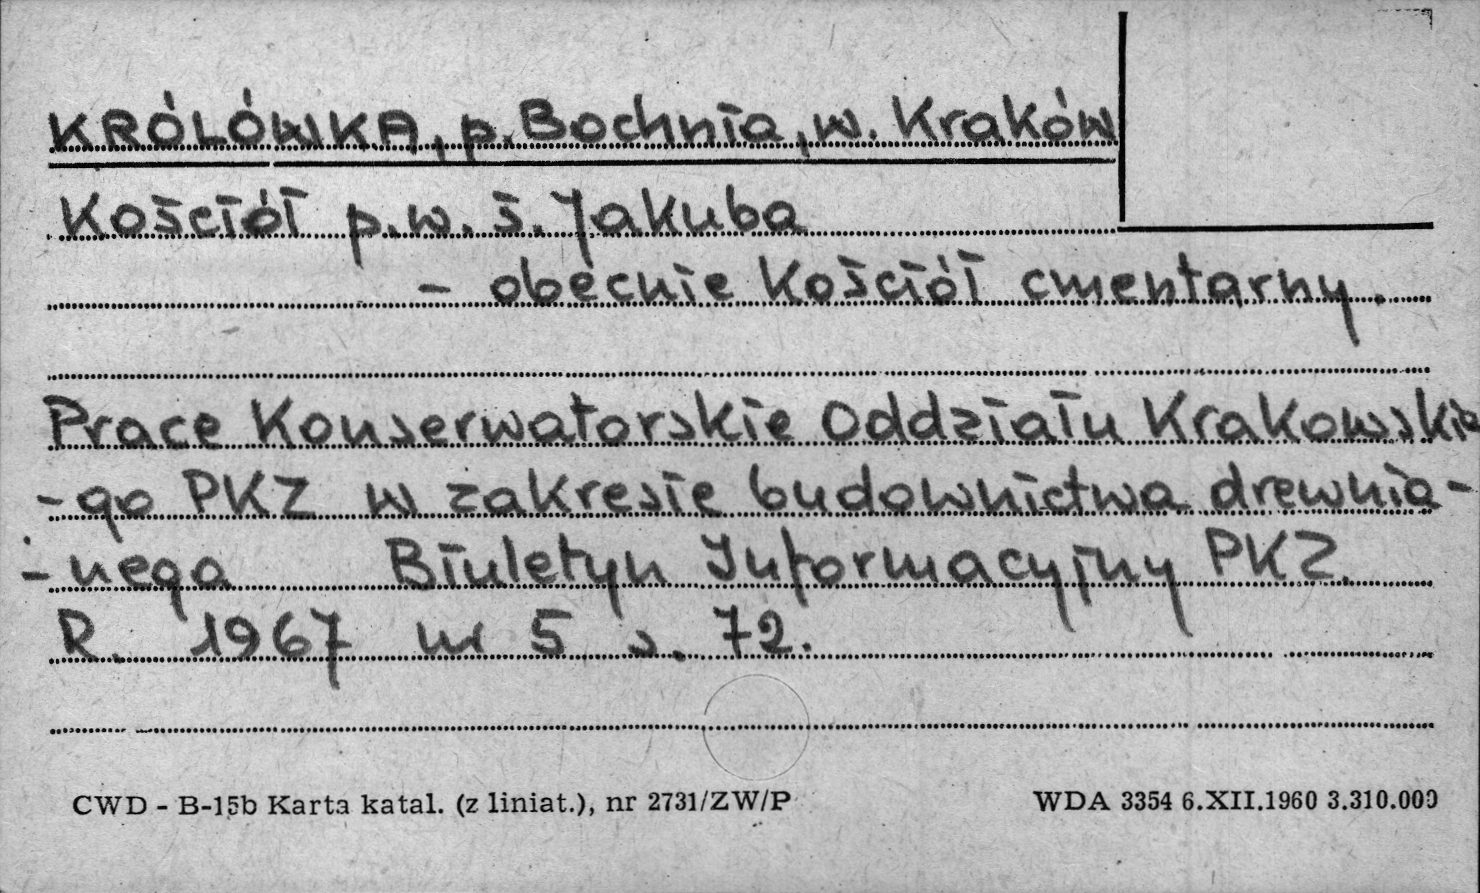 KRÓLÓWKA, p. Bochnia, w. Kraków
Kościół p.w. ś. Jakuba
- obecnie Kościół cmentarny.
Prace Konserwatorskie Oddziału Krakowskie
-go PKZ w zakresie budownictwa drewnia-
-nego Biuletyn Informacyjny PKZ.
R. 1967 nr 5 s. 72.
CWD - B-15b Karta katal. (z liniat.), nr 2731/ZW/P WDA 3354 6.XII.1960 3.310.000